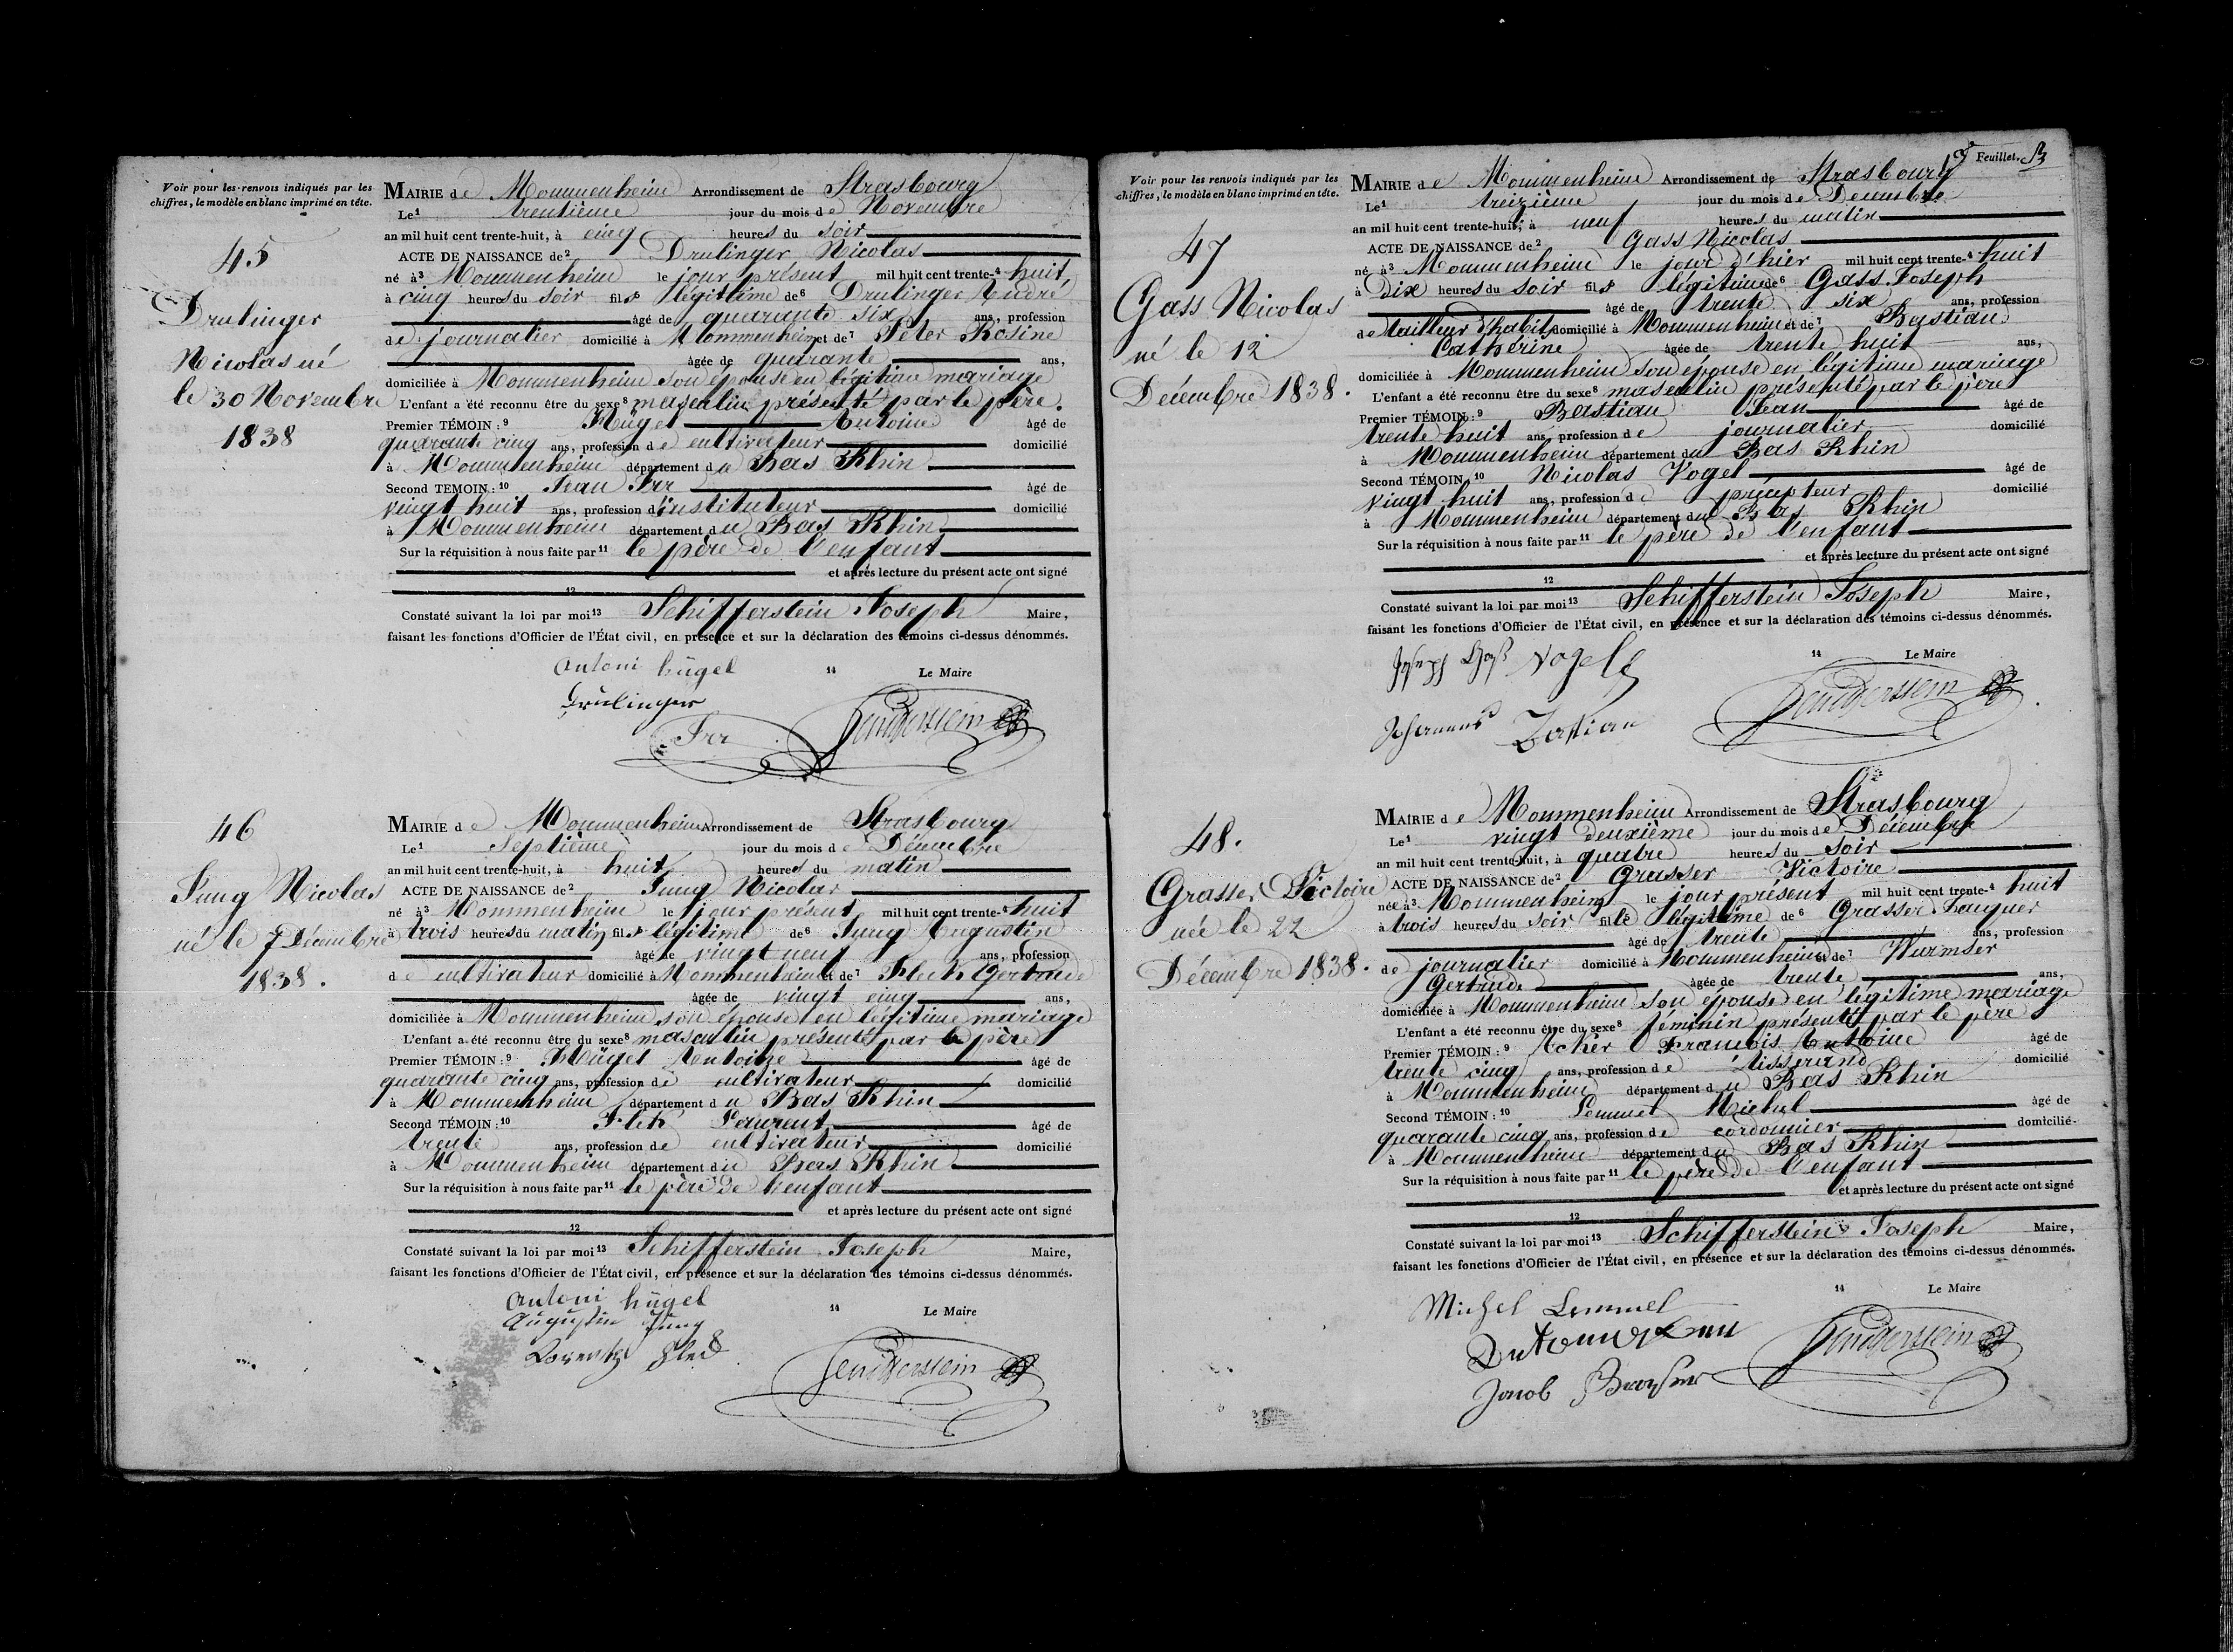 Voir pour les renvois indiqués par les
chiffres, le modèle en blanc imprimé en tête.
45
Drulinger
Nicolas né
le 30 Novembre
1838
MAIRIE de Mommenheim Arrondissement de Strasbourg
Le 1 trentième jour du mois de Novembre
an mil huit cent trente-huit, à cinq heures du soir
ACTE DE NAISSANCE de 2 Drulinger Nicolas
né à 3 Mommenheim le jour présent mil huit cent trente- 4 huit
à cinq heures du soir fils 5 légitime de 6 Drulinger André
âgé de quarante six ans, profession
de journalier domicilié à Mommenheim et de 7 Peter Rosine
âgée de quarante ans,
domiciliée à Mommenheim son épouse en légitime mariage
L'enfant a été reconnu être du sexe 8 masculin présenté par le père.
Premier TÉMOIN : 9 Hügel Antoine âgé de
quarante cinq ans, profession de cultivateur domicilié
à Mommenheim département du Bas Rhin
Second TEMOIN : 10 Jean Irr âgé de
vingt huit ans, profession d'instituteur domicilié
à Mommenheim département du Bas Rhin
Sur la réquisition à nous faite par 11 le père de l'enfant
et après lecture du présent acte ont signé
12
Constaté suivant la loi par moi 13 Schifferstein Joseph Maire,
faisant les fonctions d'Officier de l'État civil, en présence et sur la déclaration des témoins ci-dessus dénommés.
Antoni hügel 14 Le Maire
Drulinger
Irr Schifferstein
46
Jung Nicolas
né le 7 Décembre
1838.
MAIRIE de Mommenheim Arrondissement de Strasbourg
Le 1 Septième jour du mois de Décembre
an mil huit cent trente-huit, à huit heures du matin
ACTE DE NAISSANCE de 2 Jung Nicolas
né à 3 Mommenheim le jour présent mil huit cent trente- 4 huit
à trois heures du matin fils 5 légitime de 6 Jung Augustin
âgé de vingt neuf ans, profession
de cultivateur domicilié à Mommenheim et de 7 Fleck Gertrude
âgée de vingt cinq ans,
domiciliée à Mommenheim son épouse en légitime mariage
L'enfant a été reconnu être du sexe 8 masculin présenté par le père
Premier TÉMOIN : 9 Hügel Antoine âgé de
quarante cinq ans, profession de cultivateur domicilié
à Mommenheim département du Bas Rhin
Second TÉMOIN : 10 Flek Laurent âgé de
trente ans, profession de cultivateur domicilié
à Mommenheim département du Bas Rhin
Sur la réquisition à nous faite par 11 le père de l'enfant
et après lecture du présent acte ont signé
12
Constaté suivant la loi par moi 13 Schifferstein Joseph Maire,
faisant les fonctions d'Officier de l'État civil, en présence et sur la déclaration des témoins ci-dessus dénommés.
Antoni hügel 14 Le Maire
Augustin Jung
Lorentz Fleck Schifferstein
Feuillet. 13
Voir pour les renvois indiqués par les
chiffres, le modèle en blanc imprimé en tête.
47
Gass Nicolas
né le 12
Décembre 1838.
MAIRIE de Mommenheim Arrondissement de Strasbourg
Le 1 treizième jour du mois de Décembre
an mil huit cent trente-huit, à neuf heures du matin
ACTE DE NAISSANCE de 2 Gass Nicolas
né à 3 Mommenheim le jour d'hier mil huit cent trente- 4 huit
à Dix heures du soir fils 5 légitime de 6 Gass Joseph
âgé de trente six ans, profession
de tailleur d'habit domicilié à Mommenheim et de 7 Bastian
Cathérine âgée de trente huit ans,
domiciliée à Mommenheim son épouse en légitime mariage
L'enfant a été reconnu être du sexe 8 masculin présenté par le père
Premier TÉMOIN : 9 Bastian Jean âgé de
trente huit ans, profession de journalier domicilié
à Mommenheim département du Bas Rhin
Second TÉMOIN 10 Nicolas Vogel âgé de
vingt huit ans, profession de précepteur domicilié
à Mommenheim département du Bas Rhin
Sur la réquisition à nous faite par 11 le père de l'enfant
et après lecture du présent acte ont signé
12
Constaté suivant la loi par moi 13 Schifferstein Joseph Maire,
faisant les fonctions d'Officier de l'État civil, en présence et sur la déclaration des témoins ci-dessus dénommés.
Joseph Gass Vogel 14 Le Maire
Johannes Bastian Schifferstein
48.
Grasser Victoire
née le 22
Décembre 1838.
MAIRIE de Mommenheim Arrondissement de Strasbourg
Le 1 vingt deuxième jour du mois de Décembre
an mil huit cent trente-huit, à quatre heures du soir
ACTE DE NAISSANCE de 2 Grasser Victoire
née à 3 Mommenheim le jour présent mil huit cent trente- 4 huit
à trois heures du soir fille 5 légitime de 6 Grasser Jacques
âgé de trente ans, profession
de journalier domicilié à Mommenheim et de 7 Wurmser
Gertrude âgée de trente ans,
domiciliée à Mommenheim son épouse en légitime mariage
L'enfant a été reconnu être du sexe 8 féminin présenté par le père
Premier TÉMOIN : 9 Acker François Antoine âgé de
trente cinq ans, profession de tisserand domicilié
à Mommenheim département du Bas Rhin
Second TÉMOIN : 10 Lemmel Michel âgé de
quarante cinq ans, profession de cordonnier domicilié
à Mommenheim département du Bas Rhin
Sur la réquisition à nous faite par 11 le père de l'enfant
et après lecture du présent acte ont signé
12
Constaté suivant la loi par moi 13 Schifferstein Joseph Maire,
faisant les fonctions d'Officier de l'État civil, en présence et sur la déclaration des témoins ci-dessus dénommés.
Michel Lemmel 14 Le Maire
Schifferstein
Jacob